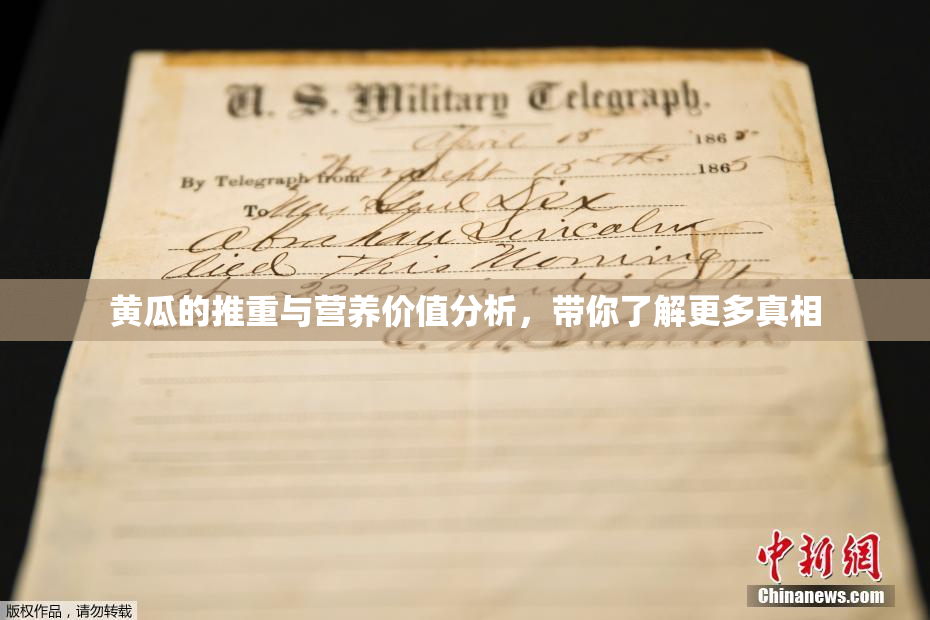 U. S. Military Telegraph.
April 15 1865
By Telegraph from War Dept 15th 1865
To Maj Genl Dix
Abraham Lincoln
died This Morning
at 22 minutes after
黄瓜的推重与营养价值分析，带你了解更多真相
E. M. Stanton
中新网
Chinanews.com
版权作品，请勿转载